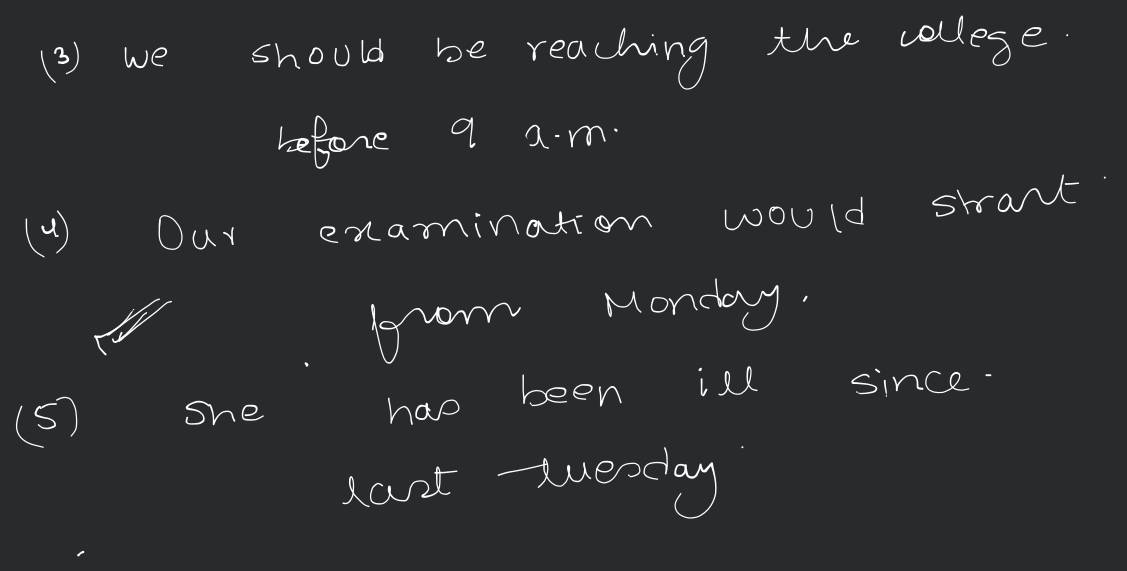 (3) we should be reaching the college.
before 9 a.m.
(4) Our examination would strart
from Monday.
(5) she has been ill since-
last tuesday